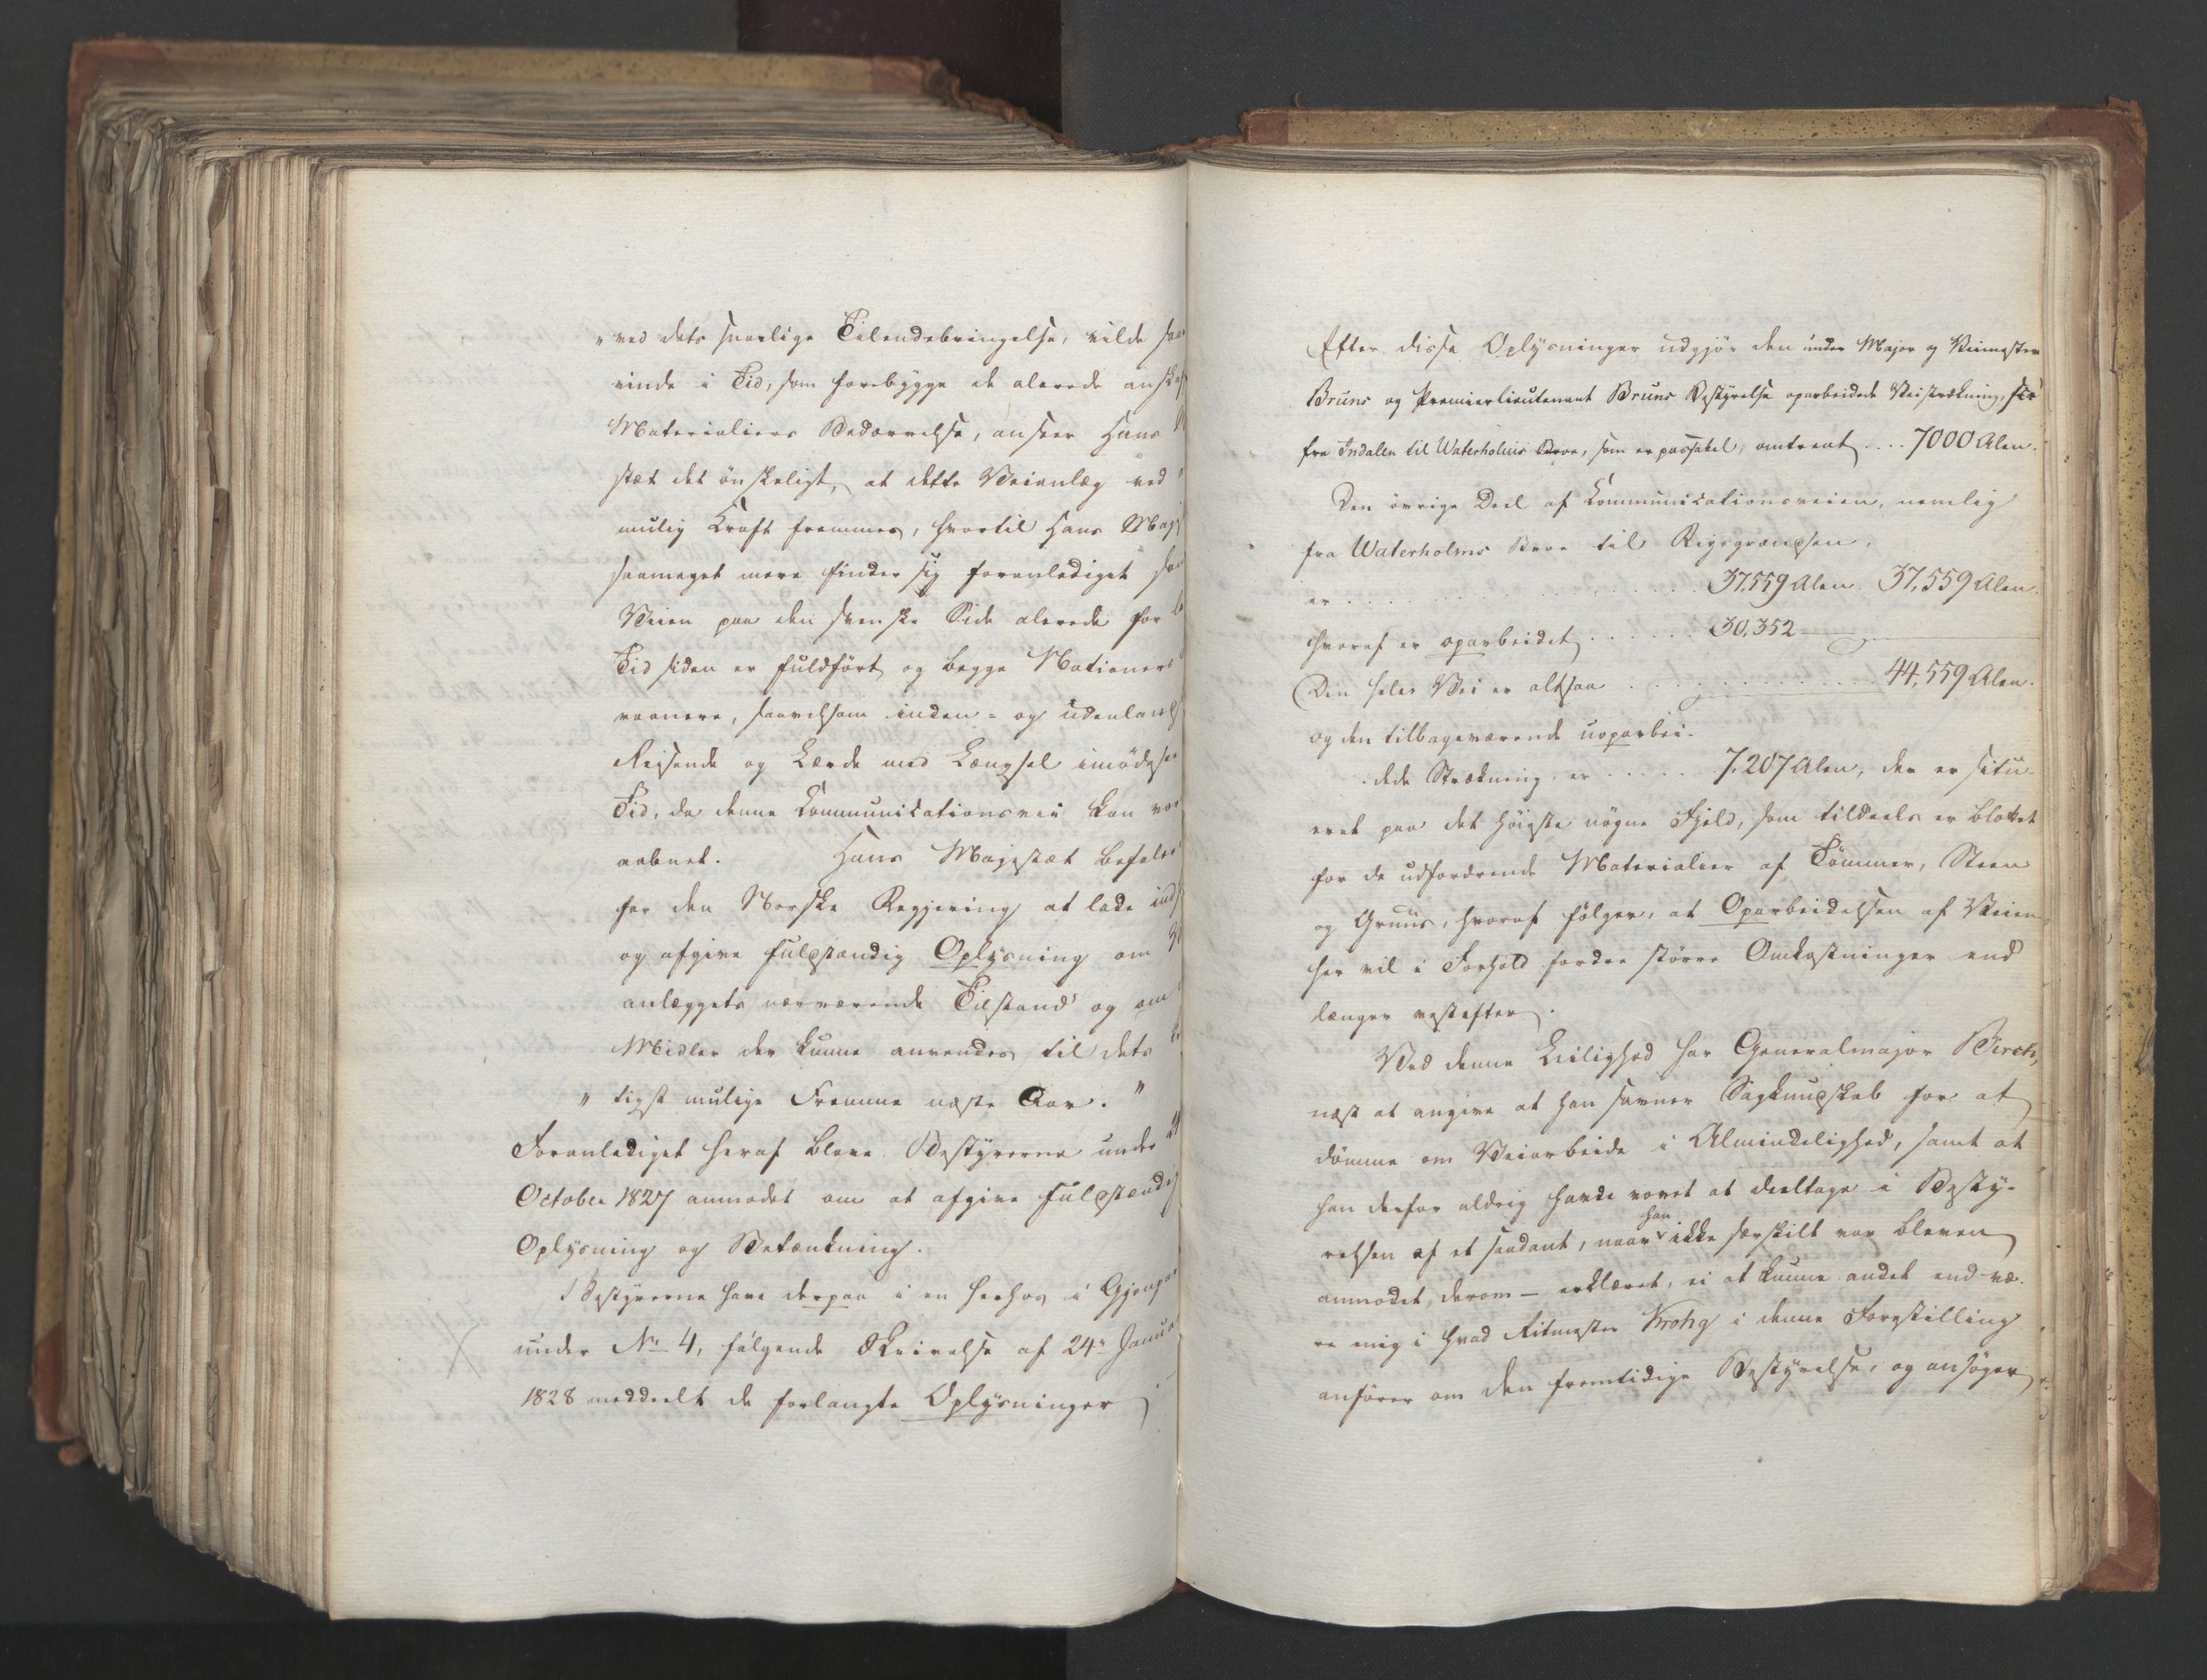 "ved dets snarlige Tilendebringelse, vilde saa
vinde i Tid, som forebygge de alerede anskaf
Materialiers Bedærvelse, anseer Hans
stæt det ønskeligt, at dette Veianlæg ved
mulig Kraft fremmes, hvortil Hans Maj
saameget mere finder sig foranlediget som
Veien paa den svenske Side alerede for
Tid siden er fuldført og begge Nationers
vaanere, saavelsom inden- og udenlands
Reisende og Lærde med Længsel imødesee
Tid, da denne Communicationsvei kan vor
aabnet. Hans Majestæt befaler
for den Norske Regjering at lade ind
og afgive fulstændig Oplysning om
anlæggets nærværende Tilstand og om
Midler der kunne anvendes til dets
" tigst mulige Fremme næste Aar."
Foranlediget heraf bleve Bestyrerne under
October 1827 anmodet om at afgive fulstændig
Oplysning og Betænkning.
Bestyrerne have derpaa i en herhos i Gjenpar
under No 4, følgende Skrivelse af 24r Janua
1828 meddeelt de forlangte Oplysninger
Efter disse Oplysninger udgjør den under Major og Veimester
Bruns og Premierlieutenant Bruns Bestyrelse oparbeidede Veistrækning,
fra Indalen til Waterholms Broe, som er passabel, omtrent . . . 7000 Alen.
Den øvrige Deel af Communicationsveien, nemlig
fra Waterholms Broe til Rigsgrændsen,
er . . . . . . 37,559 Alen. 37,559 Alen.
hvoraf er oparbeidet . . . . . . 30,352
Den hele Vei er altsaa . . . . . . 44,559 Alen.
og den tilbageværende uoparbei-
dede Strækning er . . . . . 7,207 Alen, der er situ-
eret paa det høieste nøgne Fjeld, som tildeels er blottet
for de udfordrende Materialier af Tømmer, Steen
og Gruus, hvoraf følger, at Oparbeidelsen af Veien
her vil i Forhold fordre større Omkostninger end
længer vestefter.
Ved denne Leilighed har Generalmajor Birch,
næst at angive at han savner Sagkundskab for at
dømme om Veiarbeide i Almindelighed, samt at
han derfor aldrig havde vovet at deeltage i Besty-
relsen af et saadant, naar han ikke særskilt var bleven
anmodet derom - erklæret, ei at kunne andet end væ-
re enig i hvad Ritmester Krohg i denne Forestilling
anfører om den fremtidige Bestyrelse, og ansøger